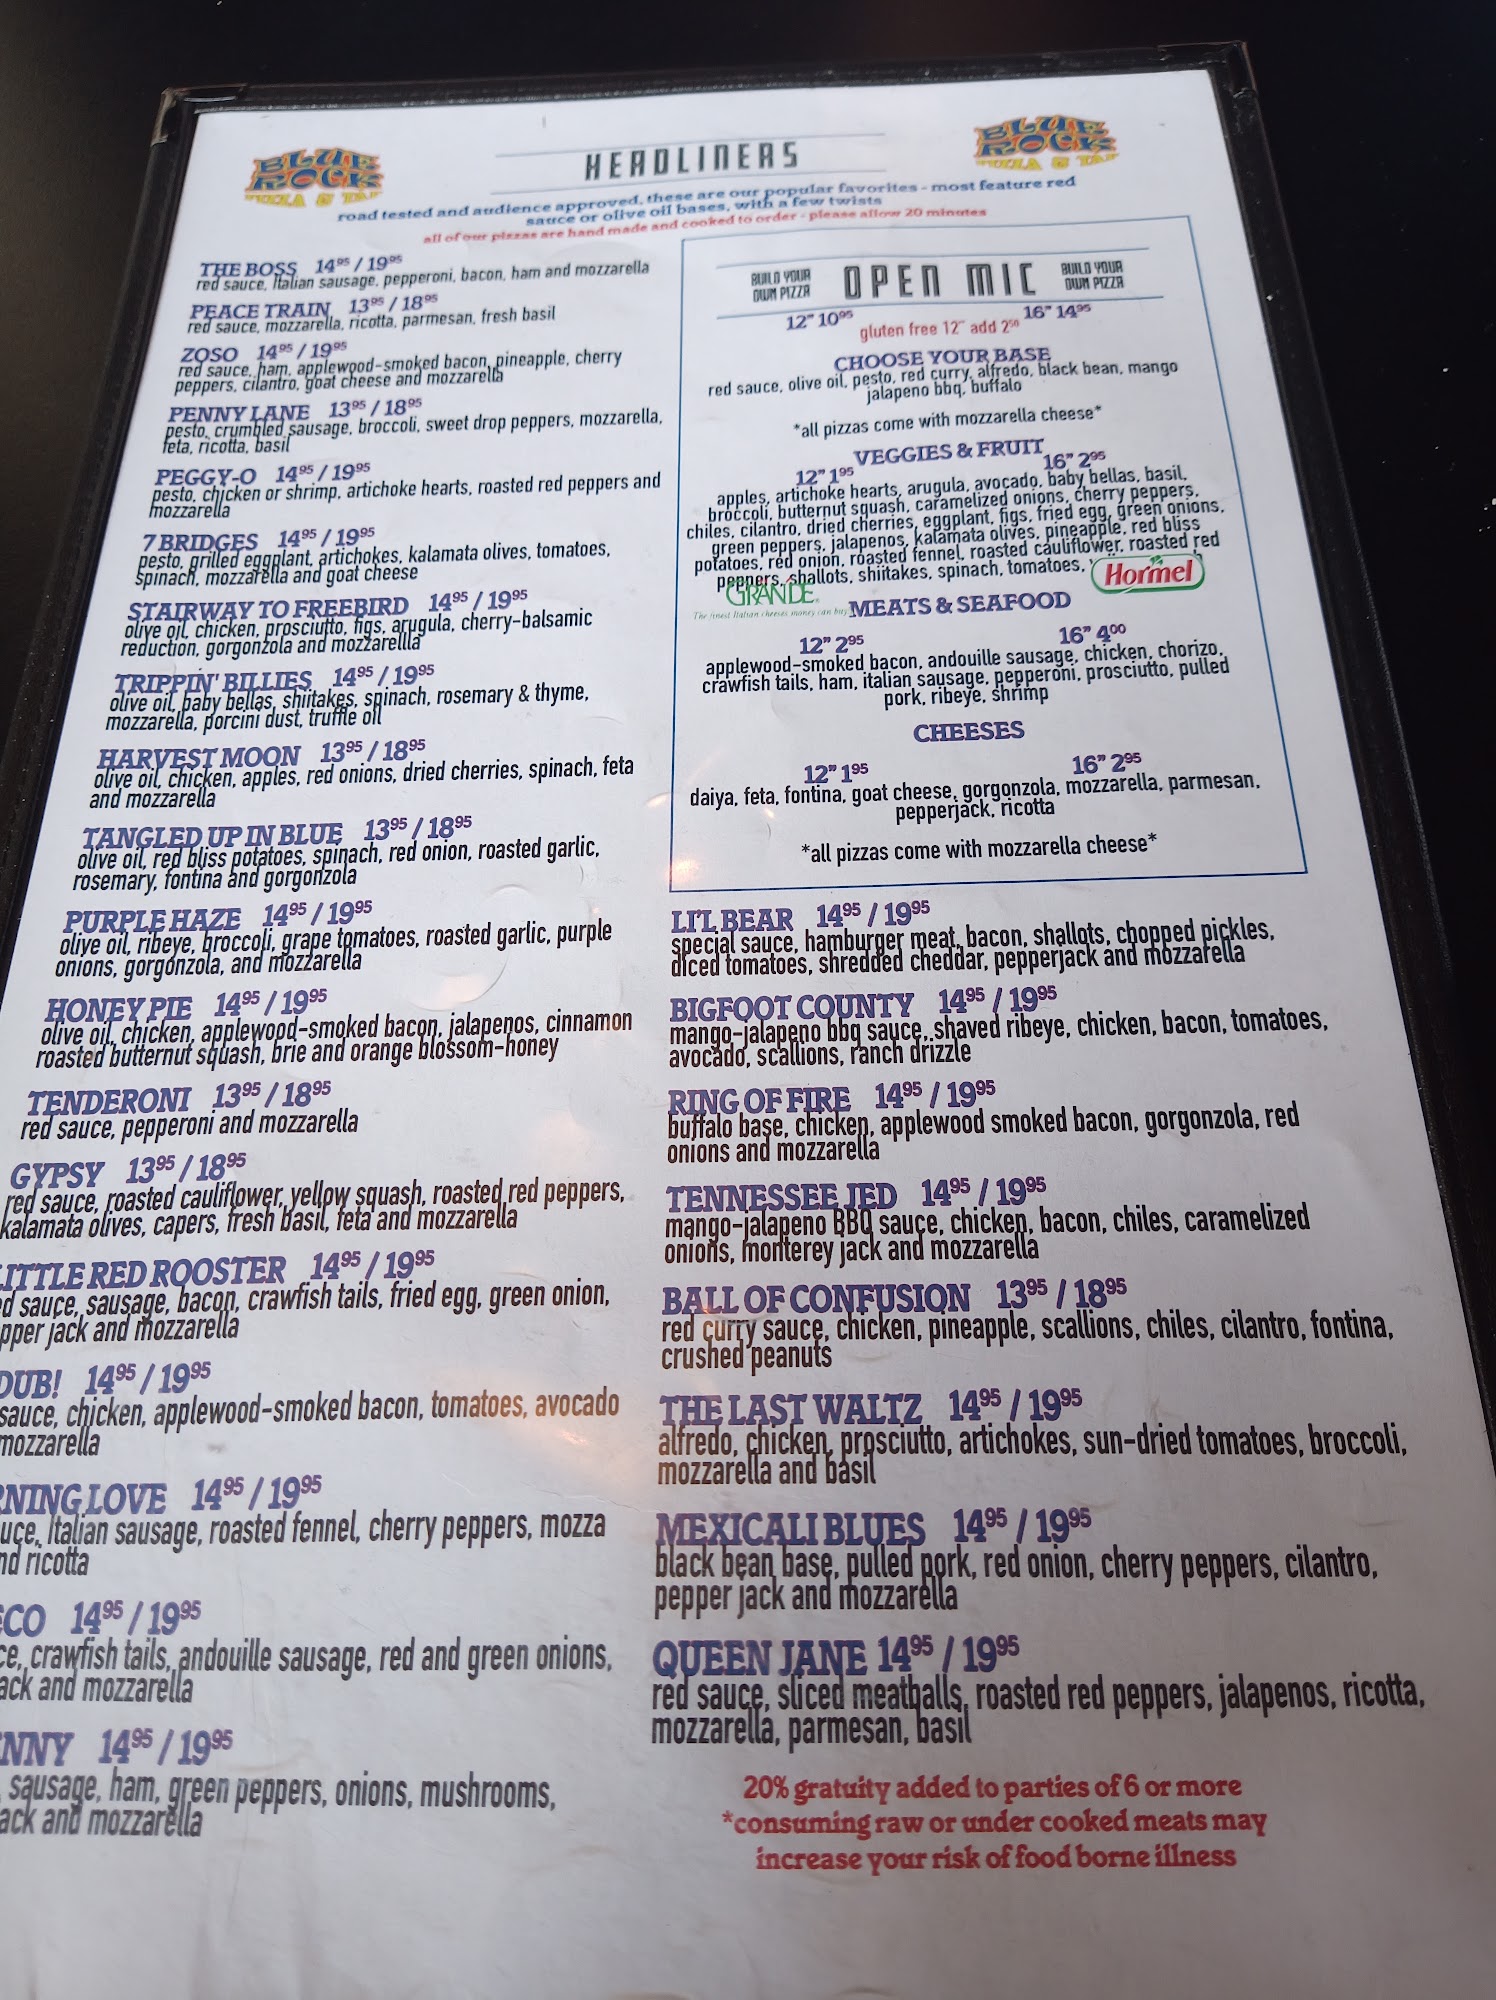 BLUE
ROCK
PIZZA & TAP
HEADLINERS
BLUE
ROCK
PIZZA & TAP
road tested and audience approved, these are our popular favorites - most feature red
sauce or olive oil bases, with a few twists
all of our pizzas are hand made and cooked to order - please allow 20 minutes
THE BOSS 14⁹⁵ / 19⁹⁵
red sauce, Italian sausage, pepperoni, bacon, ham and mozzarella
PEACE TRAIN 13⁹⁵ / 18⁹⁵
red sauce, mozzarella, ricotta, parmesan, fresh basil
ZOSO 14⁹⁵ / 19⁹⁵
red sauce, ham, applewood-smoked bacon, pineapple, cherry
peppers, cilantro, goat cheese and mozzarella
PENNY LANE 13⁹⁵ / 18⁹⁵
pesto, crumbled sausage, broccoli, sweet drop peppers, mozzarella,
feta, ricotta, basil
PEGGY-O 14⁹⁵ / 19⁹⁵
pesto, chicken or shrimp, artichoke hearts, roasted red peppers and
mozzarella
7 BRIDGES 14⁹⁵ / 19⁹⁵
pesto, grilled eggplant, artichokes, kalamata olives, tomatoes,
spinach, mozzarella and goat cheese
STAIRWAY TO FREEBIRD 14⁹⁵ / 19⁹⁵
olive oil, chicken, prosciutto, figs, arugula, cherry-balsamic
reduction, gorgonzola and mozzarellla
TRIPPIN' BILLIES 14⁹⁵ / 19⁹⁵
olive oil, baby bellas, shiitakes, spinach, rosemary & thyme,
mozzarella, porcini dust, truffle oil
HARVEST MOON 13⁹⁵ / 18⁹⁵
olive oil, chicken, apples, red onions, dried cherries, spinach, feta
and mozzarella
TANGLED UP IN BLUE 13⁹⁵ / 18⁹⁵
olive oil, red bliss potatoes, spinach, red onion, roasted garlic,
rosemary, fontina and gorgonzola
PURPLE HAZE 14⁹⁵ / 19⁹⁵
olive oil, ribeye, broccoli, grape tomatoes, roasted garlic, purple
onions, gorgonzola, and mozzarella
HONEY PIE 14⁹⁵ / 19⁹⁵
olive oil, chicken, applewood-smoked bacon, jalapenos, cinnamon
roasted butternut squash, brie and orange blossom-honey
TENDERONI 13⁹⁵ / 18⁹⁵
red sauce, pepperoni and mozzarella
GYPSY 13⁹⁵ / 18⁹⁵
red sauce, roasted cauliflower, yellow squash, roasted red peppers,
kalamata olives, capers, fresh basil, feta and mozzarella
ITTLE RED ROOSTER 14⁹⁵ / 19⁹⁵
d sauce, sausage, bacon, crawfish tails, fried egg, green onion,
pper jack and mozzarella
DUB! 14⁹⁵ / 19⁹⁵
sauce, chicken, applewood-smoked bacon, tomatoes, avocado
mozzarella
NING LOVE 14⁹⁵ / 19⁹⁵
uce, Italian sausage, roasted fennel, cherry peppers, mozza
nd ricotta
CO 14⁹⁵ / 19⁹⁵
ce, crawfish tails, andouille sausage, red and green onions,
ack and mozzarella
NNY 14⁹⁵ / 19⁹⁵
sausage, ham, green peppers, onions, mushrooms,
ack and mozzarella
BUILD YOUR
OWN PIZZA
OPEN MIC
BUILD YOUR
OWN PIZZA
12" 10⁹⁵ 16" 14⁹⁵
gluten free 12" add 2⁵⁰
CHOOSE YOUR BASE
red sauce, olive oil, pesto, red curry, alfredo, black bean, mango
jalapeno bbq, buffalo
*all pizzas come with mozzarella cheese*
VEGGIES & FRUIT
12" 1⁹⁵ 16" 2⁹⁵
apples, artichoke hearts, arugula, avocado, baby bellas, basil,
broccoli, butternut squash, caramelized onions, cherry peppers,
chiles, cilantro, dried cherries, eggplant, figs, fried egg, green onions,
green peppers, jalapenos, kalamata olives, pineapple, red bliss
potatoes, red onion, roasted fennel, roasted cauliflower, roasted red
peppers, shallots, shiitakes, spinach, tomatoes,
Hormel
GRANDE
The finest Italian cheeses money can buy
MEATS & SEAFOOD
12" 2⁹⁵ 16" 4⁰⁰
applewood-smoked bacon, andouille sausage, chicken, chorizo,
crawfish tails, ham, italian sausage, pepperoni, prosciutto, pulled
pork, ribeye, shrimp
CHEESES
12" 1⁹⁵ 16" 2⁹⁵
daiya, feta, fontina, goat cheese, gorgonzola, mozzarella, parmesan,
pepperjack, ricotta
*all pizzas come with mozzarella cheese*
LI'L BEAR 14⁹⁵ / 19⁹⁵
special sauce, hamburger meat, bacon, shallots, chopped pickles,
diced tomatoes, shredded cheddar, pepperjack and mozzarella
BIGFOOT COUNTY 14⁹⁵ / 19⁹⁵
mango-jalapeno bbq sauce, shaved ribeye, chicken, bacon, tomatoes,
avocado, scallions, ranch drizzle
RING OF FIRE 14⁹⁵ / 19⁹⁵
buffalo base, chicken, applewood smoked bacon, gorgonzola, red
onions and mozzarella
TENNESSEE JED 14⁹⁵ / 19⁹⁵
mango-jalapeno BBQ sauce, chicken, bacon, chiles, caramelized
onions, monterey jack and mozzarella
BALL OF CONFUSION 13⁹⁵ / 18⁹⁵
red curry sauce, chicken, pineapple, scallions, chiles, cilantro, fontina,
crushed peanuts
THE LAST WALTZ 14⁹⁵ / 19⁹⁵
alfredo, chicken, prosciutto, artichokes, sun-dried tomatoes, broccoli,
mozzarella and basil
MEXICALI BLUES 14⁹⁵ / 19⁹⁵
black bean base, pulled pork, red onion, cherry peppers, cilantro,
pepper jack and mozzarella
QUEEN JANE 14⁹⁵ / 19⁹⁵
red sauce, sliced meatballs, roasted red peppers, jalapenos, ricotta,
mozzarella, parmesan, basil
20% gratuity added to parties of 6 or more
*consuming raw or under cooked meats may
increase your risk of food borne illness